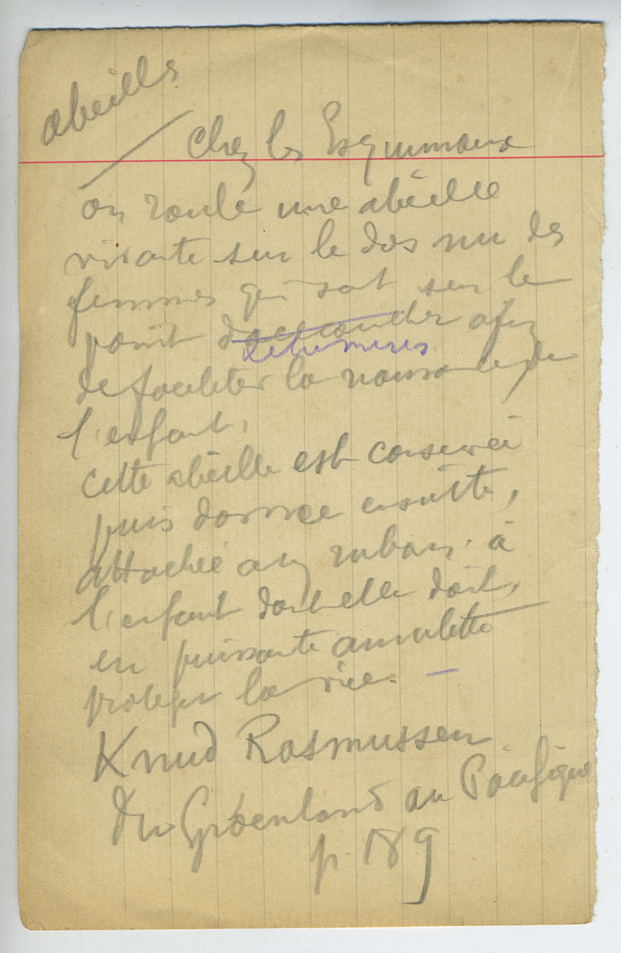 abeille
Chez les Esquimaux
on roule une abeille
vivante sur le dos nu des
femmes qui sont sur le
point d'accoucher afin
de faciliter la naissance de
l'enfant.
cette abeille est conservée
puis donnée ensuite,
attachée au ruban à
l'enfant dont elle doit,
en puissante amulette
protéger la vie. —
Knud Rasmussen
Du Groenland au Pacifique
p. 189